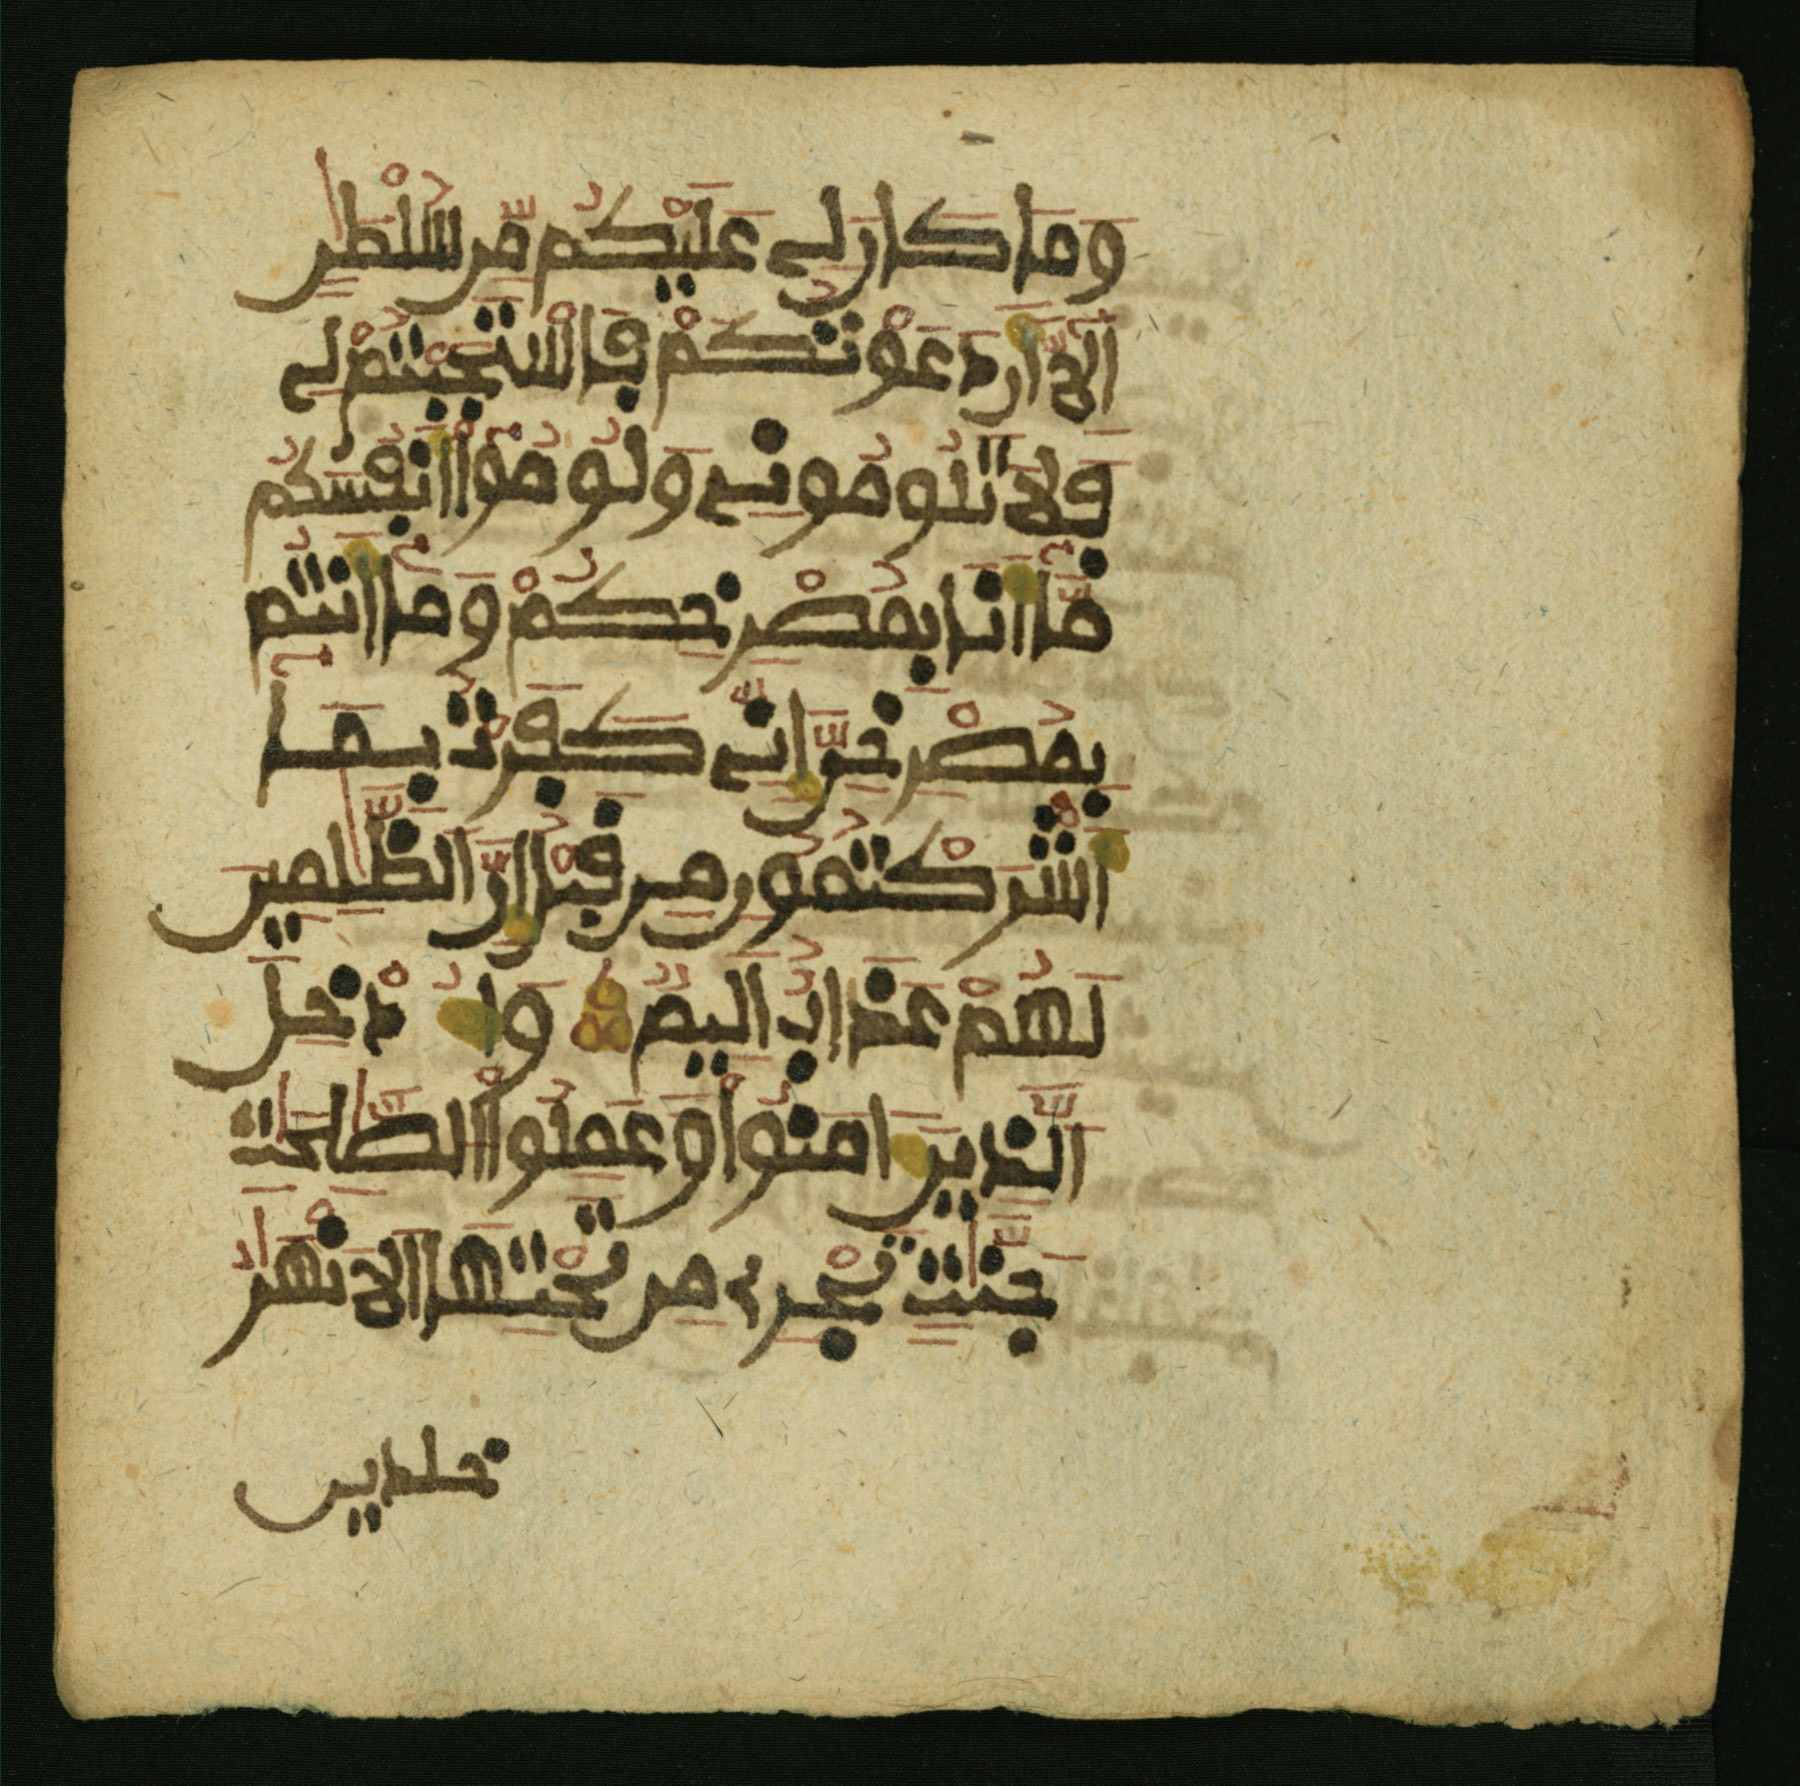 وَمَا كَانَ لِے عَلَيْكُم مِّن سُلْطَٰنٍ
اِلَّآ أَن دَعَوْتُكُمْ فَاسْتَجَبْتُمْ لِے
فَلَا تَلُومُونِے وَلُومُوٓاْ أَنفُسَكُم
مَّآ أَنَا بِمُصْرِخِكُمْ وَمَآ أَنتُم
بِمُصْرِخِىَّ إِنِّے كَفَرْتُ بِمَآ
أَشْرَكْتُمُونِ مِن قَبْلُ إِنَّ اَلظَّٰلِمِينَ
لَهُمْ عَذَابٌ اَلِيمٌ وَأُدْخِلَ
اَلذِينَ ءَامَنُواْ وَعَمِلُواْ اُلصَّٰلِحَٰتِ
جَنَّٰتٍ تَجْرِے مِن تَحْتِهَا اَلَانْهَٰرُ
خلدين